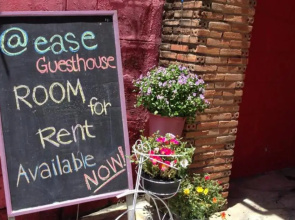 @ ease
Guesthouse
ROOM
for
Rent
Available
NOW!